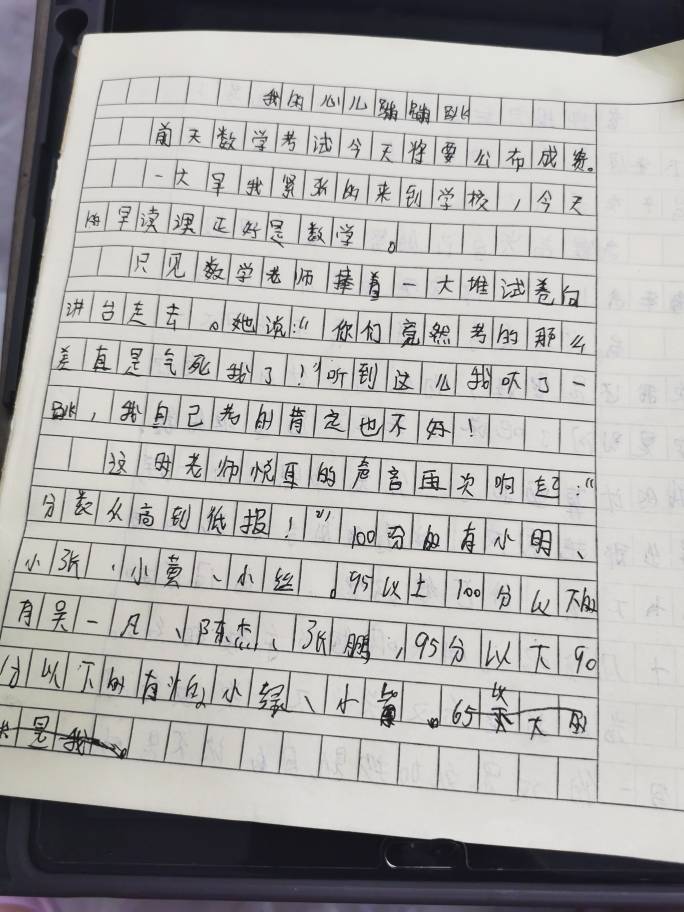 我的心儿蹦蹦跳
前天数学考试今天将要公布成赛。
一大早我紧张的来到学校，今天
的早读课正好是数学。
只见数学老师捧着一大堆试卷向
讲台走去。她说：“你们竟然考的那么
差真是气死我了！”听到这儿我吓了一
跳，我自己考的肯定也不好！
这时老师悦耳的声音再次响起：“
分数从高到低报！”100分的有小明、
小张、小黄、小丝。95以上100分以下的
有吴一凡、陈杰、张鹏，95分以下90
分以下的有小绿、小。65以下的
是我。